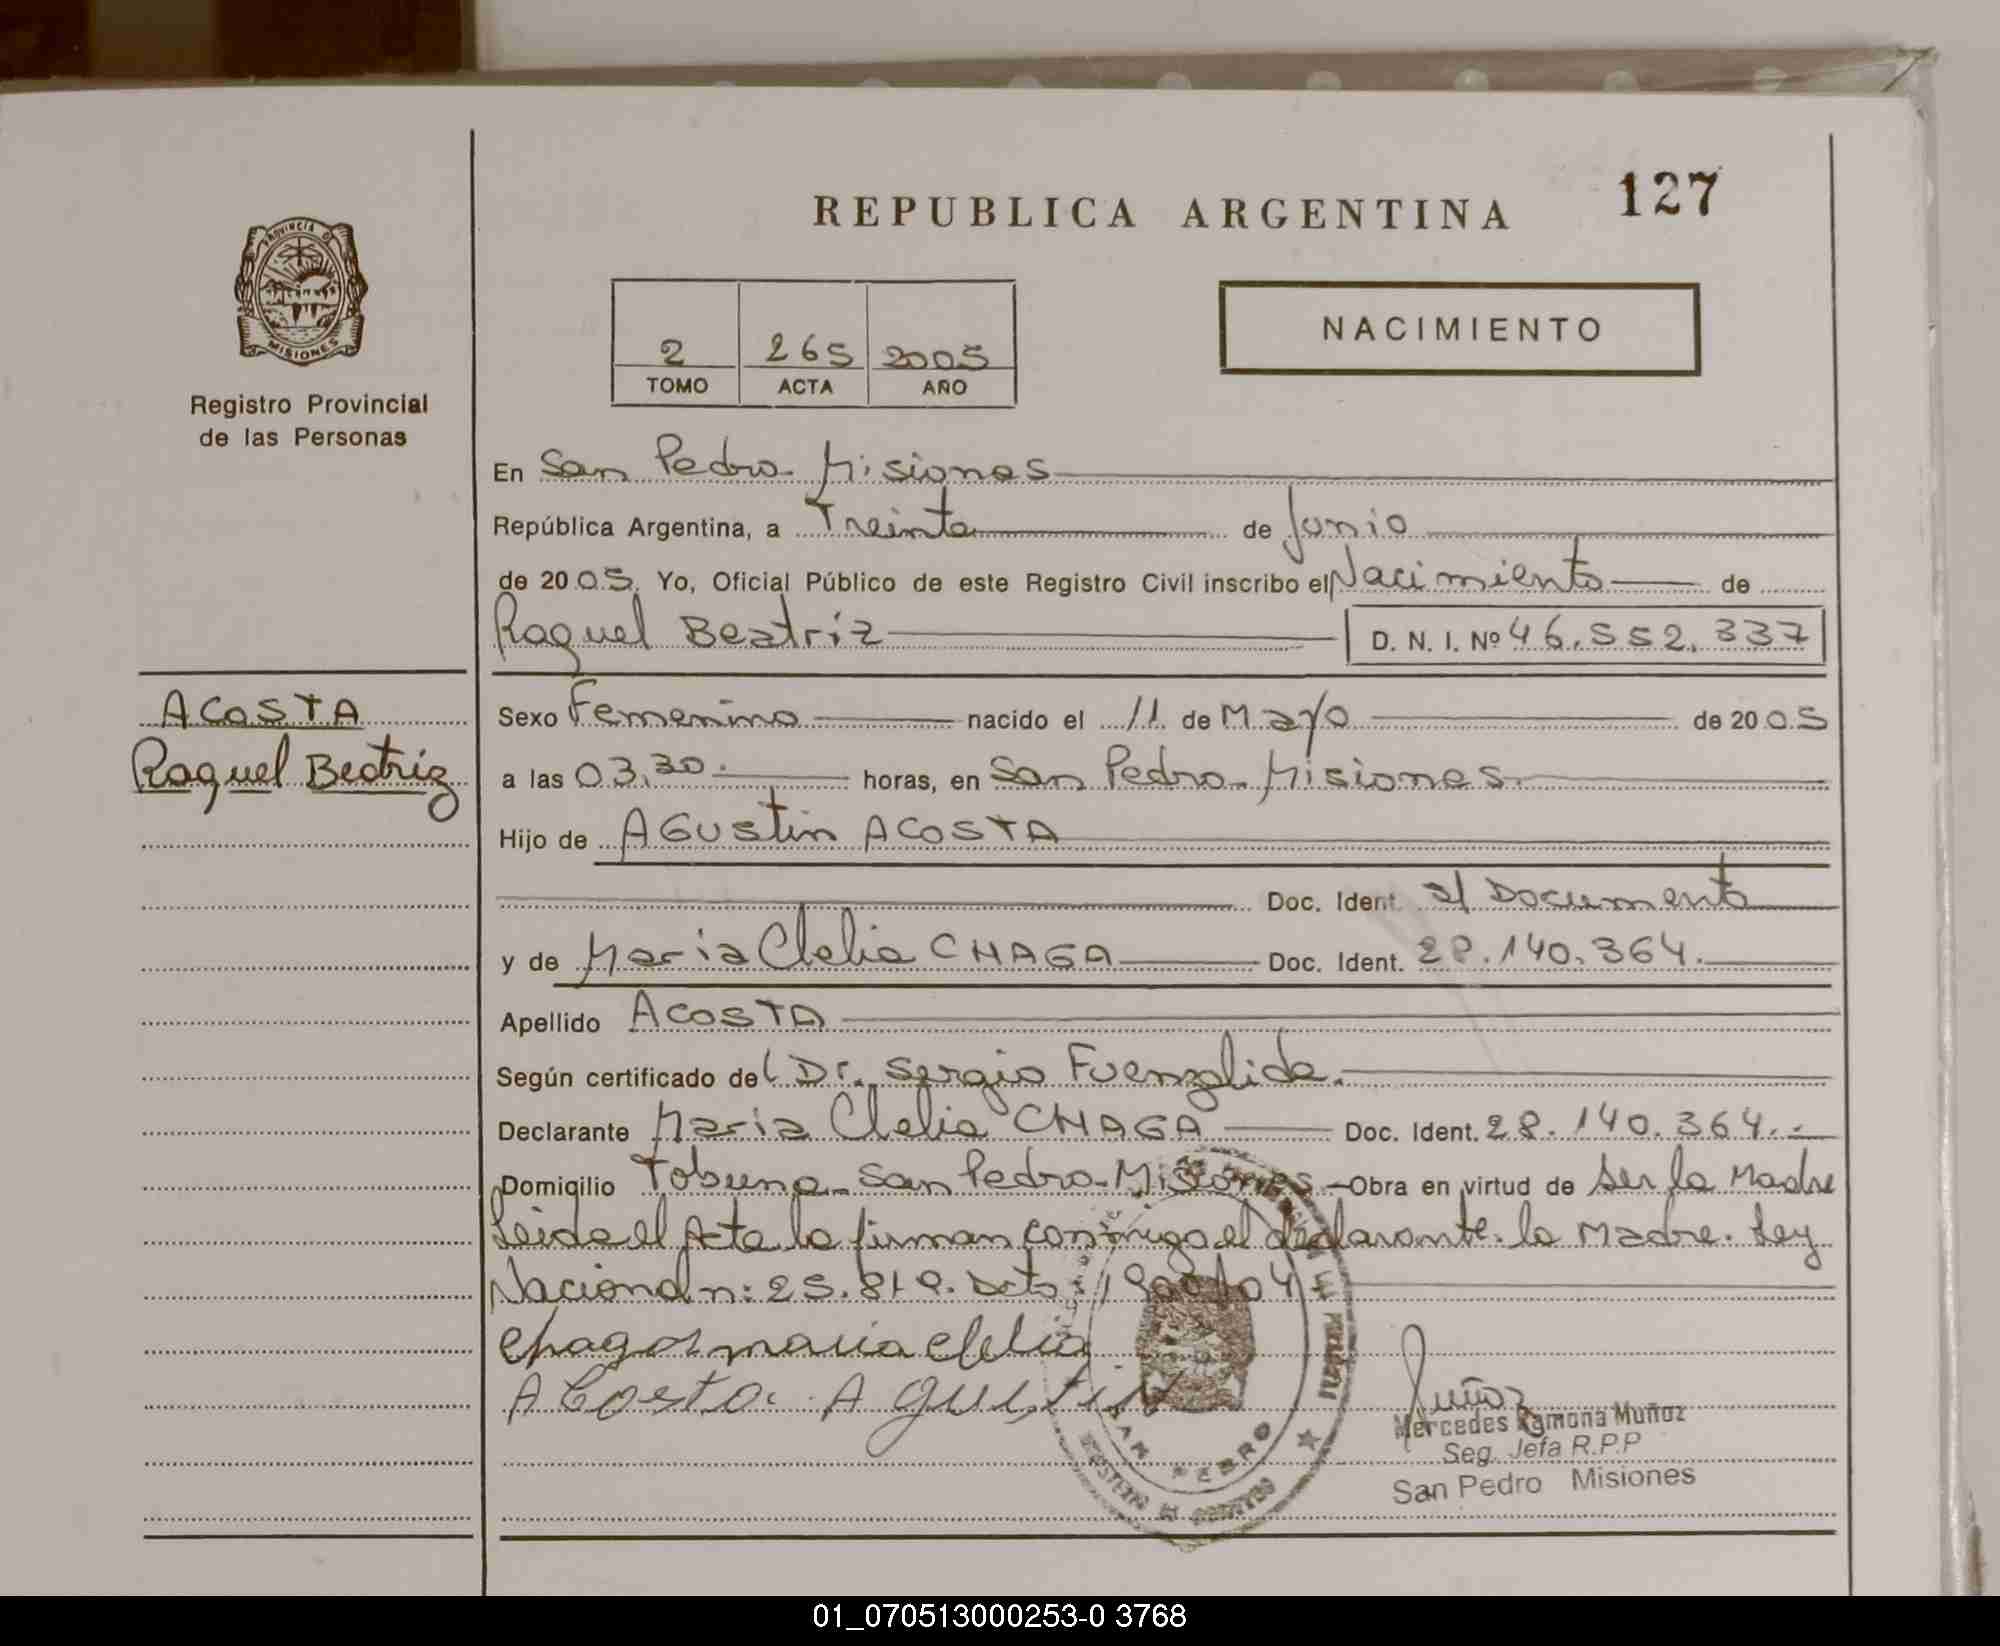 REPUBLICA ARGENTINA 127
PROVINCIA DE
MISIONES
Registro Provincial
de las Personas
NACIMIENTO
2 265 2005
TOMO ACTA AÑO
En San Pedro - Misiones
República Argentina, a Treinta de Junio
de 2005. Yo, Oficial Público de este Registro Civil inscribo el Nacimiento de
Raquel Beatriz D. N. I. Nº 46.552.337
ACOSTA
Raquel Beatriz
Sexo Femenino nacido el 11 de Mayo de 2005
a las 03,30. horas, en San Pedro - Misiones.
Hijo de AGustin ACOSTA
Doc. Ident. s/ Documento
y de Maria Clelia CHAGA Doc. Ident. 28.140.364.
Apellido ACOSTA
Según certificado del Dr. Sergio Fuenzalida.
Declarante Maria Clelia CHAGA Doc. Ident. 28.140.364.-
Domicilio Tobuna - San Pedro - Misiones - Obra en virtud de Ser la Madre
Leida el Acta la firman conmigo el declarante. la Madre. Ley
Nacional n: 25.819. Dcto:
chagas maria clelia
Acosta. Agustin
Muñoz
Mercedes Ramona Muñoz
Seg. Jefa R.P.P
San Pedro Misiones
SAN PEDRO
01_070513000253-0 3768